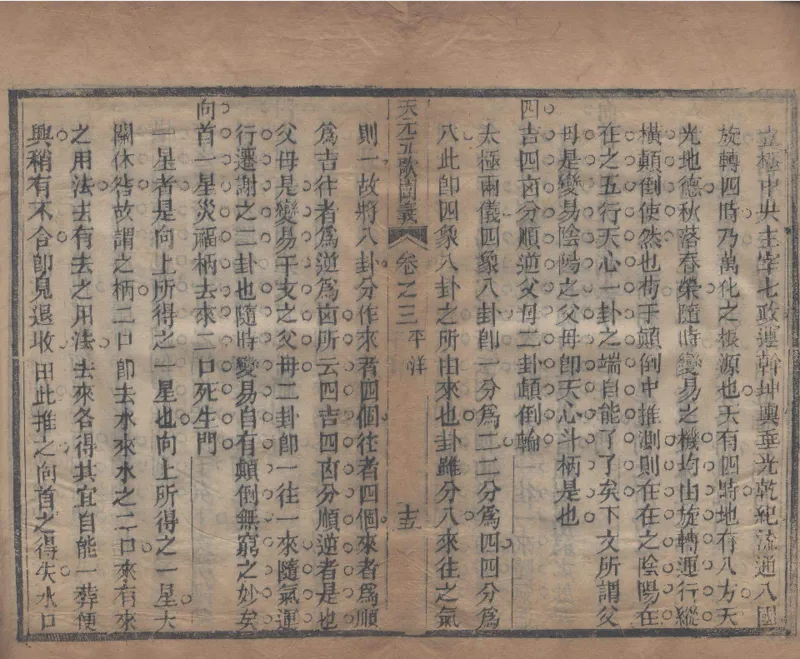 立極中央主宰七政運斡坤輿垂光乾紀流通八國
旋轉四時乃萬化之根源也天有四時地有八方天
光地德秋落春榮隨時變易之機均由旋轉運行縱
橫顛倒使然也苟于顛倒中推測則在在之陰陽在
在之五行天心一卦之端自能了了矣下文所謂父
母是變易陰陽之父母即天心斗柄是也
四吉四凶分順逆父母二卦顛倒輪
太極兩儀四象八卦即一分爲二二分爲四四分爲
八此即四象八卦之所由來也卦雖分八來往之氣
天元五歌闡義
卷之三
平洋
十五
則一故將八卦分作來者四個往者四個來者爲順
爲吉往者爲逆爲凶所云四吉四凶分順逆者是也
父母是變易干支之父母二卦即一往一來隨氣運
行遷謝之二卦也隨時變易自有顛倒無窮之妙矣
向首一星災福柄去來二口死生門
一星者是向上所得之一星也向上所得之一星大
關休咎故謂之柄二口即去水來水之二口來有來
之用法去有去之用法去來各得其宜自能一葬便
興稍有不合即見退敗由此推之向首之得失水口